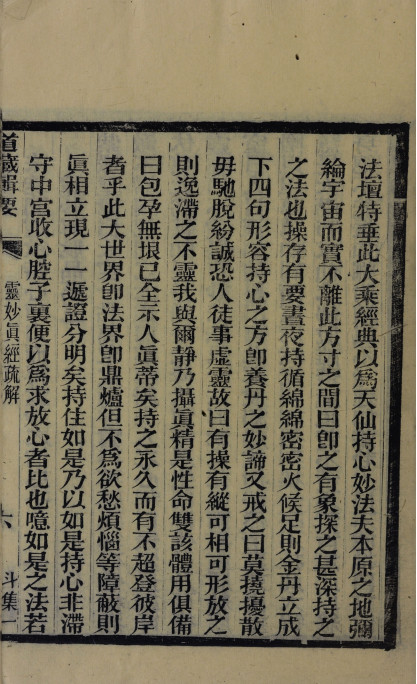 法壇特垂此大乘經典以爲天仙持心妙法夫本原之地彌
綸宇宙而實不離此方寸之間曰卽之有象探之甚深持之
之法也操存有要晝夜持循綿綿密密火候足則金丹立成
下四句形容持心之方卽養丹之妙諦又戒之曰莫撓擾散
毋馳脫紛誠恐人徒事虛靈故曰有操有縱可相可形放之
則逸滯之不靈我與爾靜乃攝眞精是性命雙該體用俱備
曰包孕無垠已全示人眞蒂矣持之永久而有不超登彼岸
者乎此大世界卽法界卽鼎爐但不爲欲愁煩惱等障蔽則
眞相立現一一遞證分明矣持住如是乃以如是持心非滯
守中宮收心腔子裏便以爲求放心者比也噫如是之法若
道藏輯要
靈妙眞經疏解
六
斗集一